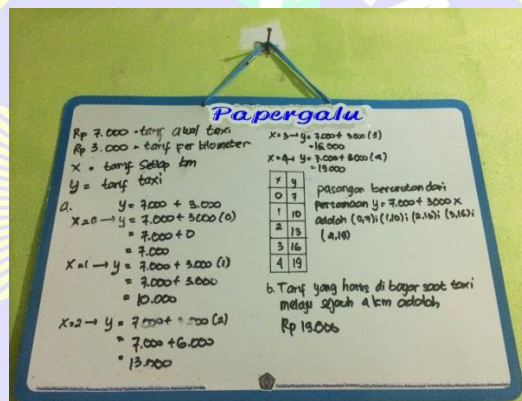 Papergalu
Rp 7.000 = tarif awal taxi
Rp 3.000 = tarif per kilometer
x = tarif setiap km
y = tarif taxi
a. y = 7.000 + 3.000
x=0 → y = 7.000 + 3.000 (0)
= 7.000 + 0
= 7.000
x=1 → y = 7.000 + 3.000 (1)
= 7.000 + 3.000
= 10.000
x=2 → y = 7.000 + 3.000 (2)
= 7.000 + 6.000
= 13.000
x=3 → y = 7.000 + 3.000 (3)
= 16.000
x=4 → y = 7.000 + 3.000 (4)
= 19.000
x y
0 7
1 10
2 13
3 16
4 19
pasangan berurutan dari
persamaan y = 7.000 + 3000 x
adalah (0,7); (1,10); (2,13); (3,16);
(4,19)
b. Tarif yang harus di bayar saat taxi
melaju sejauh 4 km adalah
Rp 19.000